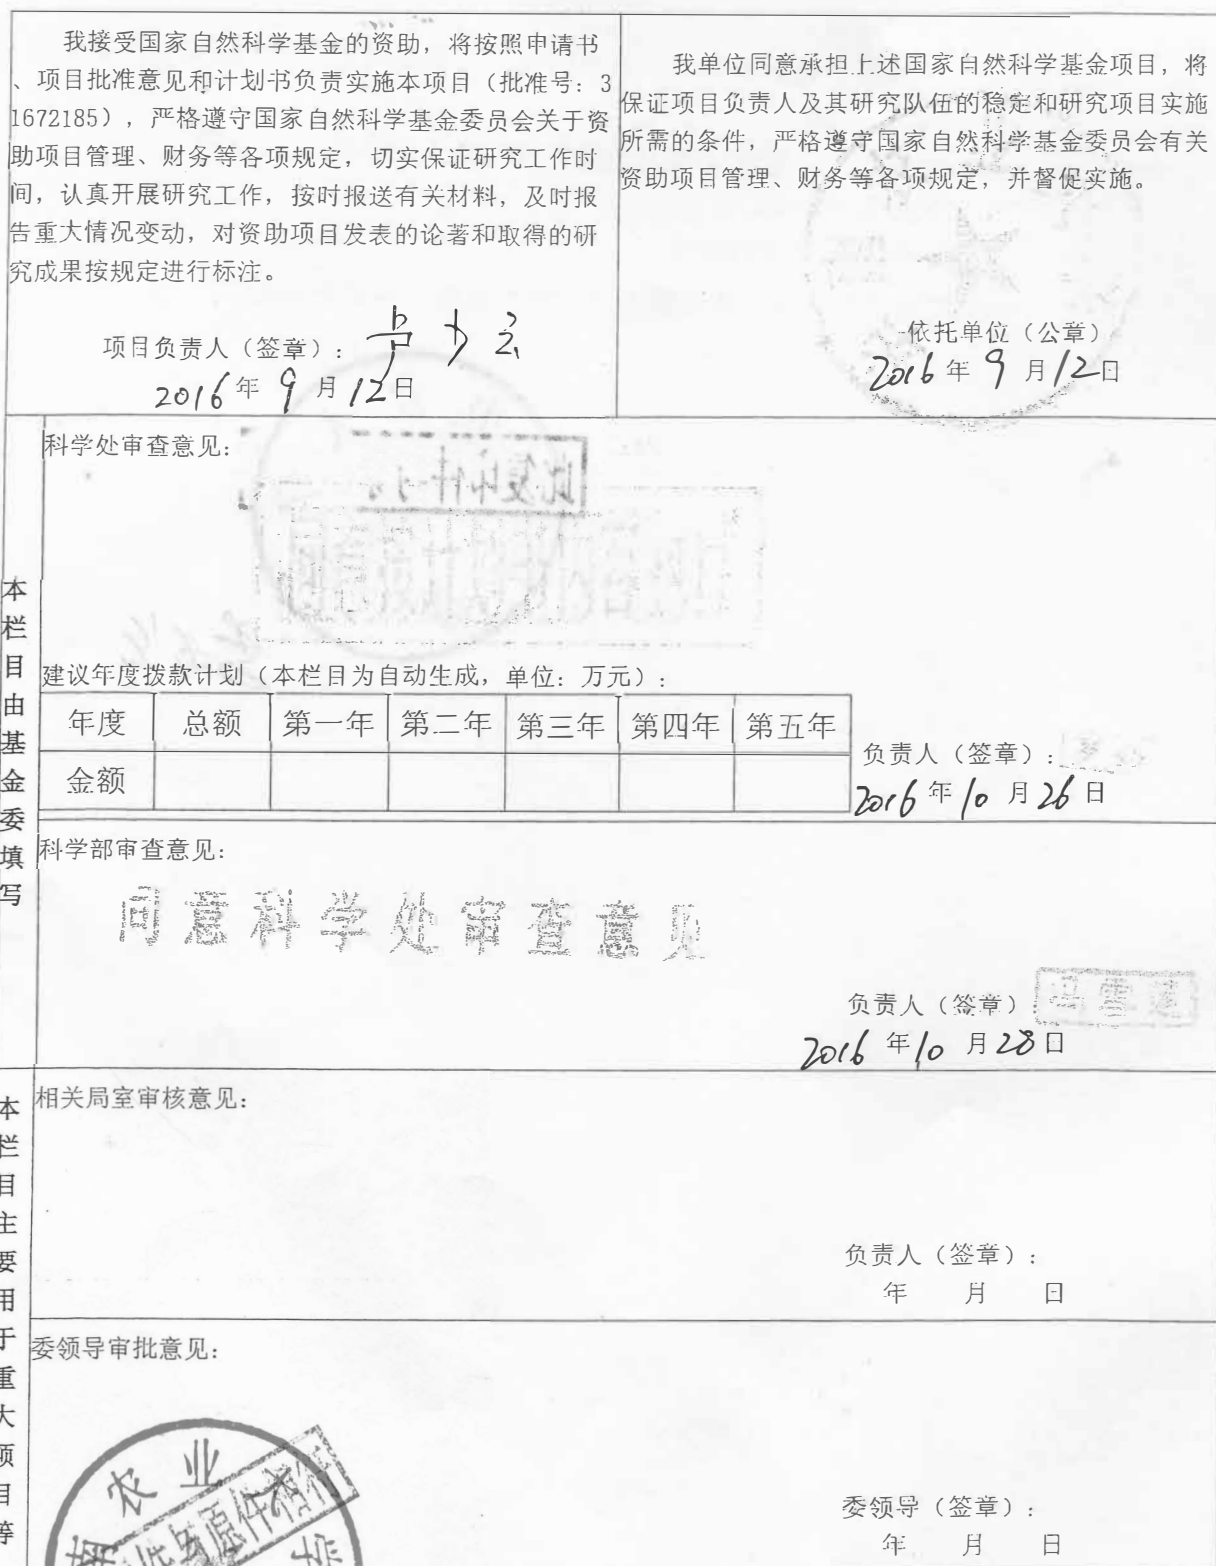 我接受国家自然科学基金的资助，将按照申请书
、项目批准意见和计划书负责实施本项目（批准号：3
1672185），严格遵守国家自然科学基金委员会关于资
助项目管理、财务等各项规定，切实保证研究工作时
间，认真开展研究工作，按时报送有关材料，及时报
告重大情况变动，对资助项目发表的论著和取得的研
究成果按规定进行标注。
项目负责人（签章）：
2016年9月12日
我单位同意承担上述国家自然科学基金项目，将
保证项目负责人及其研究队伍的稳定和研究项目实施
所需的条件，严格遵守国家自然科学基金委员会有关
资助项目管理、财务等各项规定，并督促实施。
依托单位（公章）
2016年9月12日
本栏目由基金委填写
科学处审查意见：
建议年度拨款计划（本栏目为自动生成，单位：万元）：
年度 总额 第一年 第二年 第三年 第四年 第五年
金额
负责人（签章）：
2016年10月26日
科学部审查意见：
同意科学处审查意见
负责人（签章）
2016年10月28日
本栏目主要用于重大项目等
相关局室审核意见：
负责人（签章）：
年 月 日
委领导审批意见：
农业大学
与原件相符
委领导（签章）：
年 月 日